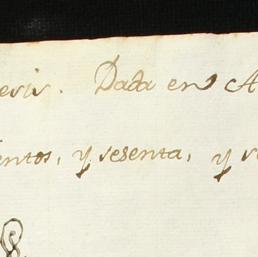 Dada en A
entos, y sesenta, y